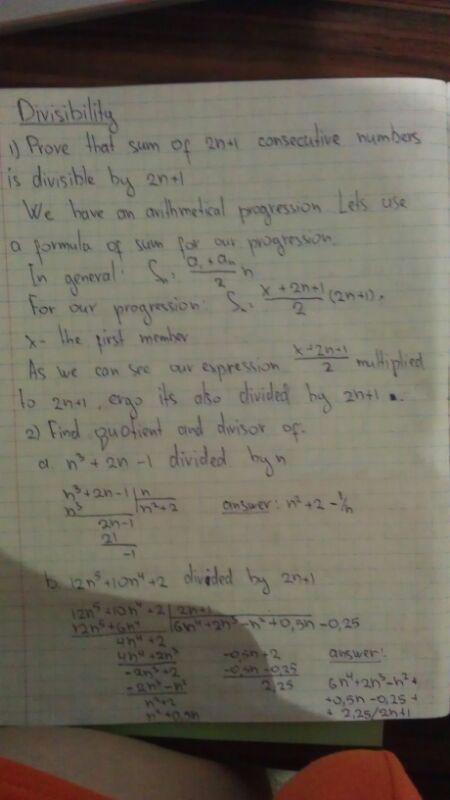 Divisibility
1) Prove that sum of 2n+1 consecutive numbers
is divisible by 2n+1
We have an arithmetical progression Lets use
a formula of sum for our progression.
In general: Sn = (a₁ + an)/2 n
For our progression: Sn = (x + 2n+1)/2 (2n+1),
x - the first member
As we can see our expression (x+2n+1)/2 multiplied
to 2n+1, ergo its also divided by 2n+1.
2) Find quotient and divisor of:
a. n³ + 2n - 1 divided by n
n³+2n-1 | n
n³ | n²+2
2n-1
-1
answer: n² + 2 - 1/n
b. 12n⁵+10n⁴+2 divided by 2n+1
12n⁵+10n⁴+2 | 2n+1
12n⁵+6n⁴ | 6n⁴+2n³-n²+0,5n-0,25
4n⁴+2
4n⁴+2n³
-2n³+2
-2n³-n²
n²+2
n²+0,5n
-0,5n+2
-0,5n-0,25
2,25
answer:
6n⁴+2n³-n²+
+0,5n-0,25+
+2,25/2n+1